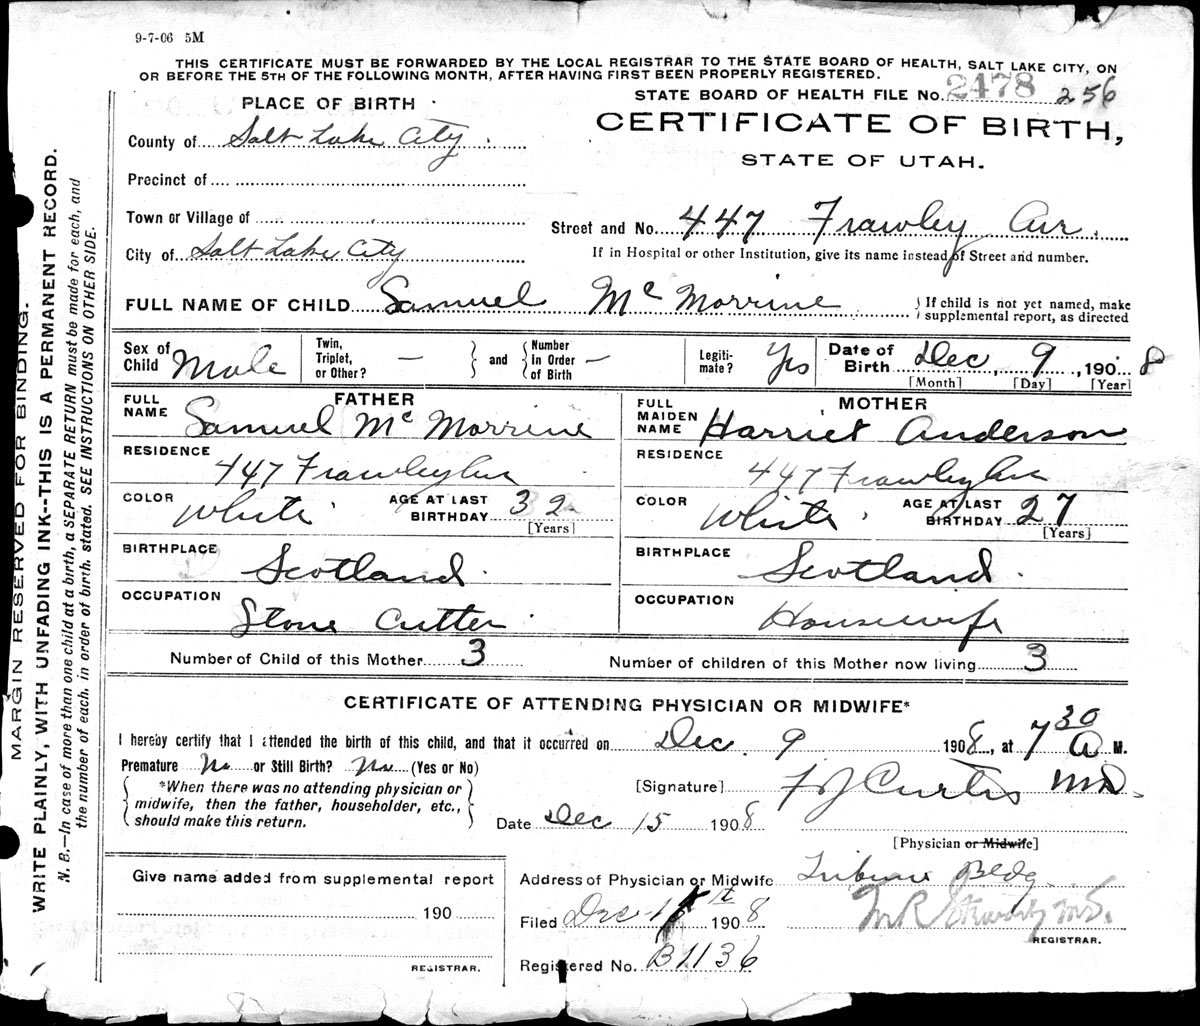 9-7-06 5M
THIS CERTIFICATE MUST BE FORWARDED BY THE LOCAL REGISTRAR TO THE STATE BOARD OF HEALTH, SALT LAKE CITY, ON
OR BEFORE THE 5TH OF THE FOLLOWING MONTH, AFTER HAVING FIRST BEEN PROPERLY REGISTERED.
STATE BOARD OF HEALTH FILE No. 2478 256
PLACE OF BIRTH
CERTIFICATE OF BIRTH,
STATE OF UTAH.
County of Salt Lake City
Precinct of
Town or Village of
Street and No. 447 Frawley Ave.
City of Salt Lake City
If in Hospital or other Institution, give its name instead of Street and number.
FULL NAME OF CHILD Samuel Mc Morrine
If child is not yet named, make
supplemental report, as directed
Sex of Child Male
Twin, Triplet, or Other? — and Number in Order of Birth —
Legitimate? Yes
Date of Birth Dec 9, 1908
[Month] [Day] [Year]
FATHER
FULL NAME Samuel Mc Morrine
RESIDENCE 447 Frawley Ave
COLOR White
AGE AT LAST BIRTHDAY 32
[Years]
BIRTHPLACE Scotland
OCCUPATION Stone Cutter
MOTHER
FULL MAIDEN NAME Harriet Anderson
RESIDENCE 447 Frawley Ave
COLOR White
AGE AT LAST BIRTHDAY 27
[Years]
BIRTHPLACE Scotland
OCCUPATION Housewife
Number of Child of this Mother 3
Number of children of this Mother now living 3
CERTIFICATE OF ATTENDING PHYSICIAN OR MIDWIFE*
I hereby certify that I attended the birth of this child, and that it occurred on Dec. 9 1908, at 7 30 A M.
Premature No or Still Birth? No (Yes or No)
*When there was no attending physician or
midwife, then the father, householder, etc.,
should make this return.
[Signature] F J Curtis MD.
Date Dec 15 1908
[Physician or Midwife]
Give name added from supplemental report
190
REGISTRAR.
Address of Physician or Midwife Tribune Bldg.
Filed Dec 1908
REGISTRAR.
Registered No. B1136
MARGIN RESERVED FOR BINDING.
WRITE PLAINLY, WITH UNFADING INK--THIS IS A PERMANENT RECORD.
N. B.—In case of more than one child at a birth, a SEPARATE RETURN must be made for each, and
the number of each, in order of birth, stated. SEE INSTRUCTIONS ON OTHER SIDE.